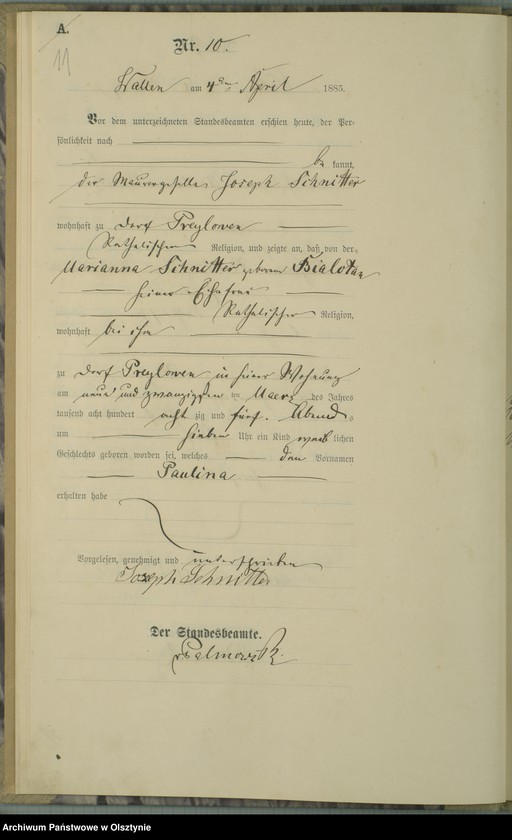 A.
11
Nr. 10.
Wallen am 4ten April 1885.
Vor dem unterzeichneten Standesbeamten erschien heute, der Per-
sönlichkeit nach
be kannt,
der Maurergeselle Joseph Schnitter
wohnhaft zu Dorf Preylowen
Katholischer Religion, und zeigte an, daß von der
Marianna Schnitter geborenen
seiner Ehefrau
Katholischer Religion,
wohnhaft bei ihm
zu Dorf Preylowen in seiner Wohnung
am neun und zwanzigsten im Maerz des Jahres
tausend acht hundert acht zig und fünf. Abends
um sieben Uhr ein Kind weib lichen
Geschlechts geboren worden sei, welches den Vornamen
Paulina
erhalten habe
Vorgelesen, genehmigt und unterschrieben
Joseph Schnitter
Der Standesbeamte.
Archiwum Państwowe w Olsztynie